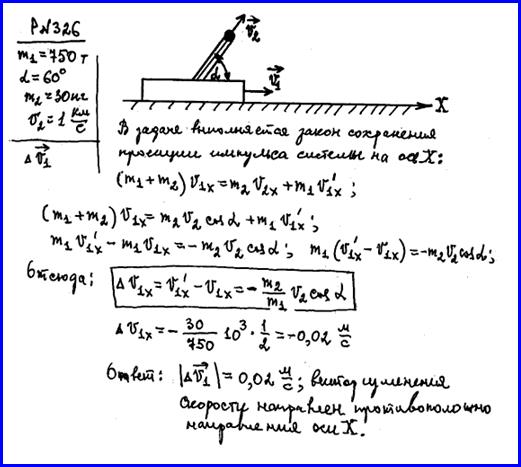 РN326
m₁=750т
α=60°
m₂=30кг
v₂=1 км/с
Δv⃗₁
v⃗₂
α
v⃗₁
X
В задаче выполняется закон сохранения
проекции импульса системы на оси X:
(m₁+m₂)v₁ₓ=m₂v₂ₓ+m₁v₁ₓ′;
(m₁+m₂)v₁ₓ=m₂v₂cosα+m₁v₁ₓ′;
m₁v₁ₓ′-m₁v₁ₓ=-m₂v₂cosα; m₁(v₁ₓ′-v₁ₓ)=-m₂v₂cosα;
Отсюда: Δv₁ₓ=v₁ₓ′-v₁ₓ=-m₂/m₁ v₂cosα
Δv₁ₓ=-30/750 10³·1/2=-0,02 м/с
Ответ: |Δv⃗₁|=0,02 м/с; вектор изменения
скорости направлен противоположно
направления оси X.